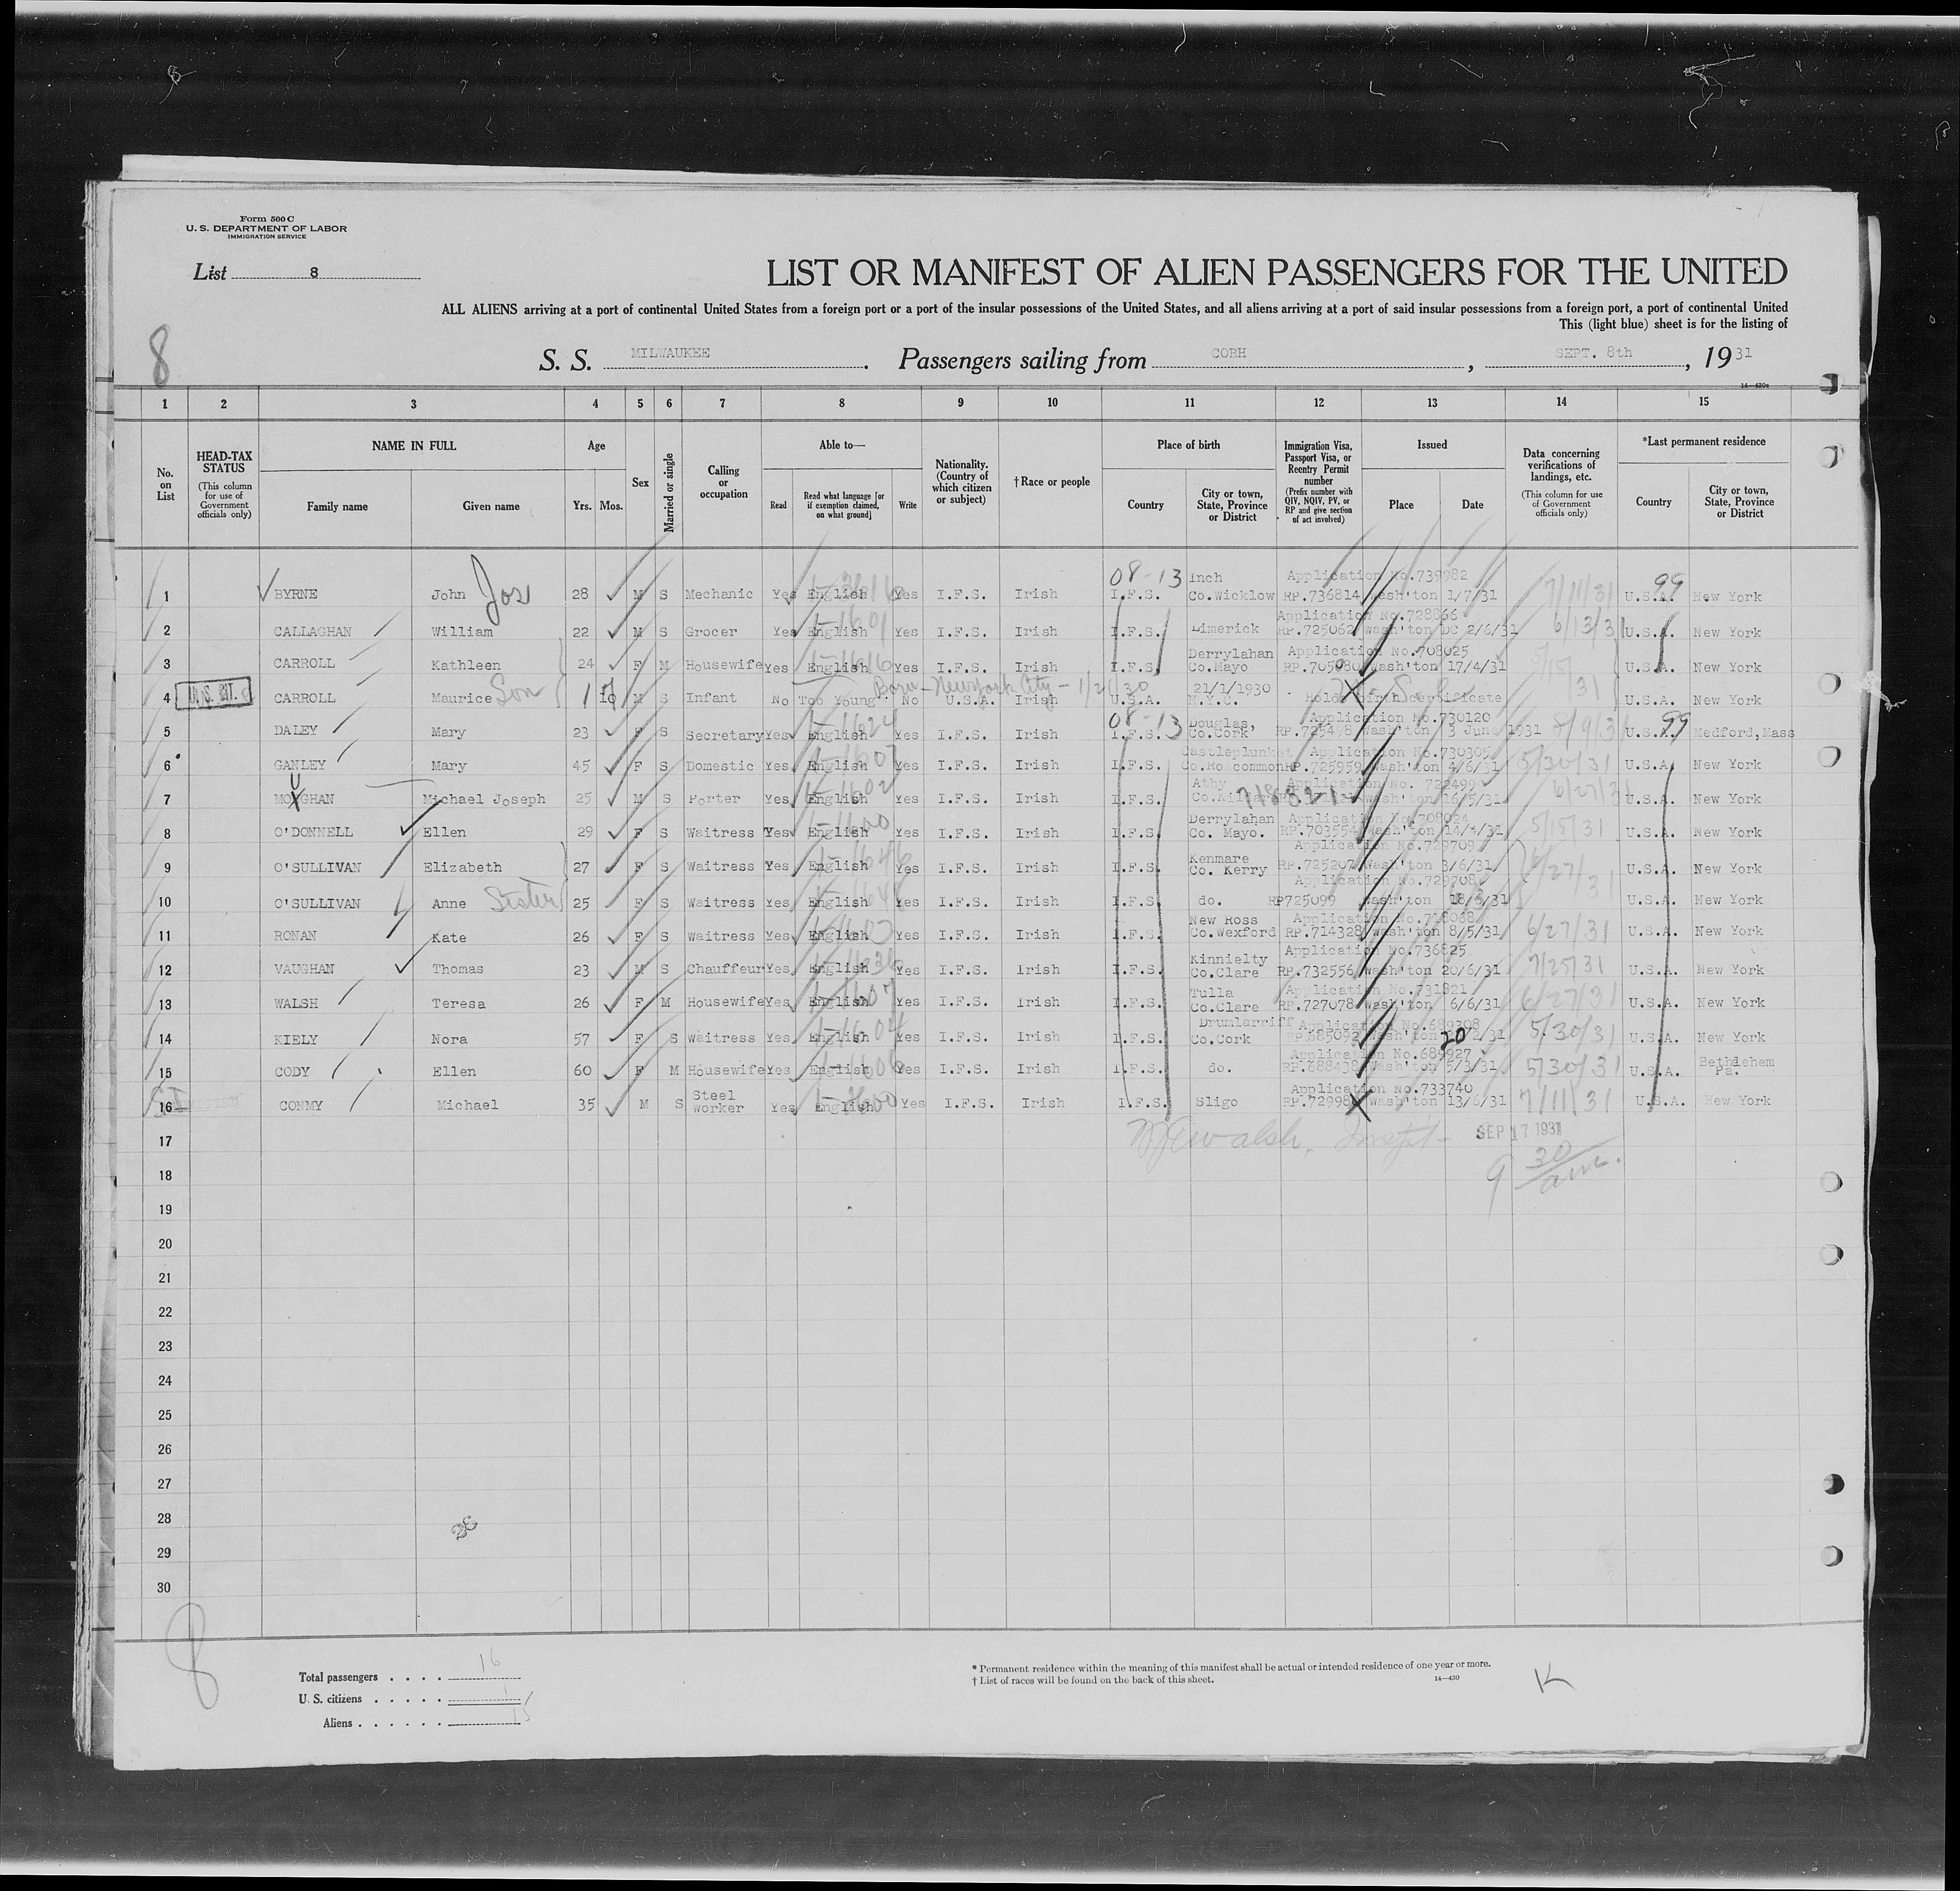 Form 500 C
U. S. DEPARTMENT OF LABOR
IMMIGRATION SERVICE
List 8
LIST OR MANIFEST OF ALIEN PASSENGERS FOR THE UNITED
ALL ALIENS arriving at a port of continental United States from a foreign port or a port of the insular possessions of the United States, and all aliens arriving at a port of said insular possessions from a foreign port, a port of continental United
This (light blue) sheet is for the listing of
8
S. S. MILWAUKEE. Passengers sailing from COBH, SEPT. 8th, 1931
14—430c
1 2 3 4 5 6 7 8 9 10 11 12 13 14 15
No. on List
HEAD-TAX STATUS (This column for use of Government officials only)
NAME IN FULL Family name Given name
Age Yrs. Mos.
Sex
Married or single
Calling or occupation
Able to— Read Read what language [or if exemption claimed, on what ground] Write
Nationality. (Country of which citizen or subject)
†Race or people
Place of birth Country City or town, State, Province or District
Immigration Visa, Passport Visa, or Reentry Permit number (Prefix number with QIV, NQIV, PV, or RP and give section of act involved)
Issued Place Date
Data concerning verifications of landings, etc. (This column for use of Government officials only)
*Last permanent residence Country City or town, State, Province or District
08-13 Inch Application No.739982 99
1 BYRNE John Jos 28 M S Mechanic Yes English Yes I.F.S. Irish I.F.S. Co.Wicklow RP.736814 Wash'ton 1/7/31 7/11/31 U.S.A. New York
Application No.728866
2 CALLAGHAN William 22 M S Grocer Yes English Yes I.F.S. Irish I.F.S. Limerick RP.725062 Wash'ton DC 2/6/31 6/13/31 U.S.A. New York
Derrylahan Application No.708025
3 CARROLL Kathleen 24 F M Housewife Yes English Yes I.F.S. Irish I.F.S. Co.Mayo Wash'ton 17/4/31 U.S.A. New York
Born - New York City - 1/21/30 21/1/1930
4 U.S. CIT. CARROLL Maurice Son 1 M S Infant No Too Young No U.S.A. Irish U.S.A. N.Y.C. Holds birth certificate 31 U.S.A. New York
08-13 Douglas, Application No.730120 99
5 DALEY Mary 23 F S Secretary Yes English Yes I.F.S. Irish I.F.S. Co.Cork RP.725498 Wash'ton 3 June 1931 U.S.A. Medford,Mass
Castleplunket Application No.730305
6 GANLEY Mary 45 F S Domestic Yes English Yes I.F.S. Irish I.F.S. Co.Roscommon RP.725959 Wash'ton 4/6/31 5/30/31 U.S.A. New York
U Athy Application No. 722499
7 MOXGHAN Michael Joseph 25 M S Porter Yes English Yes I.F.S. Irish I.F.S. 718821 Wash'ton 16/5/31 6/27/31 U.S.A. New York
Derrylahan Application No.708024
8 O'DONNELL Ellen 29 F S Waitress Yes English Yes I.F.S. Irish I.F.S. Co. Mayo. RP.703554 Wash'ton 14/4/31 5/15/31 U.S.A. New York
Kenmare Application No.729709
9 O'SULLIVAN Elizabeth 27 F S Waitress Yes English Yes I.F.S. Irish I.F.S. Co. Kerry RP.725207 Wash'ton 3/6/31 6/27/31 U.S.A. New York
Application No.729708
10 O'SULLIVAN Anne Sister 25 F S Waitress Yes English Yes I.F.S. Irish I.F.S. do. RP725099 Wash'ton U.S.A. New York
New Ross Application No.718068
11 RONAN Kate 26 F S Waitress Yes English Yes I.F.S. Irish I.F.S. Co.Wexford RP.714328 Wash'ton 8/5/31 6/27/31 U.S.A. New York
Kinnielty Application No.736825
12 VAUGHAN Thomas 23 M S Chauffeur Yes English Yes I.F.S. Irish I.F.S. Co.Clare RP.732556 Wash'ton 20/6/31 7/25/31 U.S.A. New York
Tulla Application No.731821
13 WALSH Teresa 26 F M Housewife Yes English Yes I.F.S. Irish I.F.S. Co.Clare RP.727078 Wash'ton 6/6/31 6/27/31 U.S.A. New York
Drumlarriff Application No.689308
14 KIELY Nora 57 F S Waitress Yes English Yes I.F.S. Irish I.F.S. Co.Cork RP.685092 Wash'ton 20 2/31 5/30/31 U.S.A. New York
Application No.689927
15 CODY Ellen 60 F M Housewife Yes English Yes I.F.S. Irish I.F.S. do. RP.688438 Wash'ton 5/3/31 5/30/31 U.S.A. Bethlehem Pa.
Application No.733740
16 CONMY Michael 35 M S Steel worker Yes English Yes I.F.S. Irish I.F.S. Sligo Wash'ton 13/6/31 7/11/31 U.S.A. New York
17 Walsh, SEP 17 1931
18 9 30/am.
19
20
21
22
23
24
25
26
27
28
29
30
8
Total passengers . . . . 16
U. S. citizens . . . . . 1
Aliens . . . . . . 15
* Permanent residence within the meaning of this manifest shall be actual or intended residence of one year or more.
† List of races will be found on the back of this sheet.
14—430
K